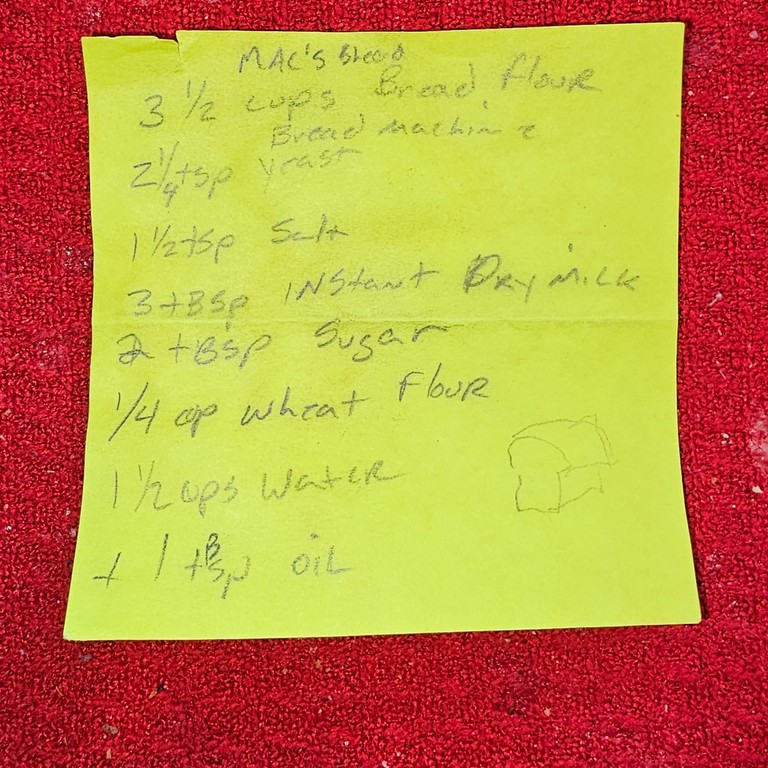 MAC's Bread
3 1/2 cups Bread flour
Bread machine
2 1/4 tsp yeast
1 1/2 tsp Salt
3 tBsp INStant Dry MiLK
2 tBsp Sugar
1/4 cp wheat Flour
1 1/2 cups Water
+ 1 tBsp oiL